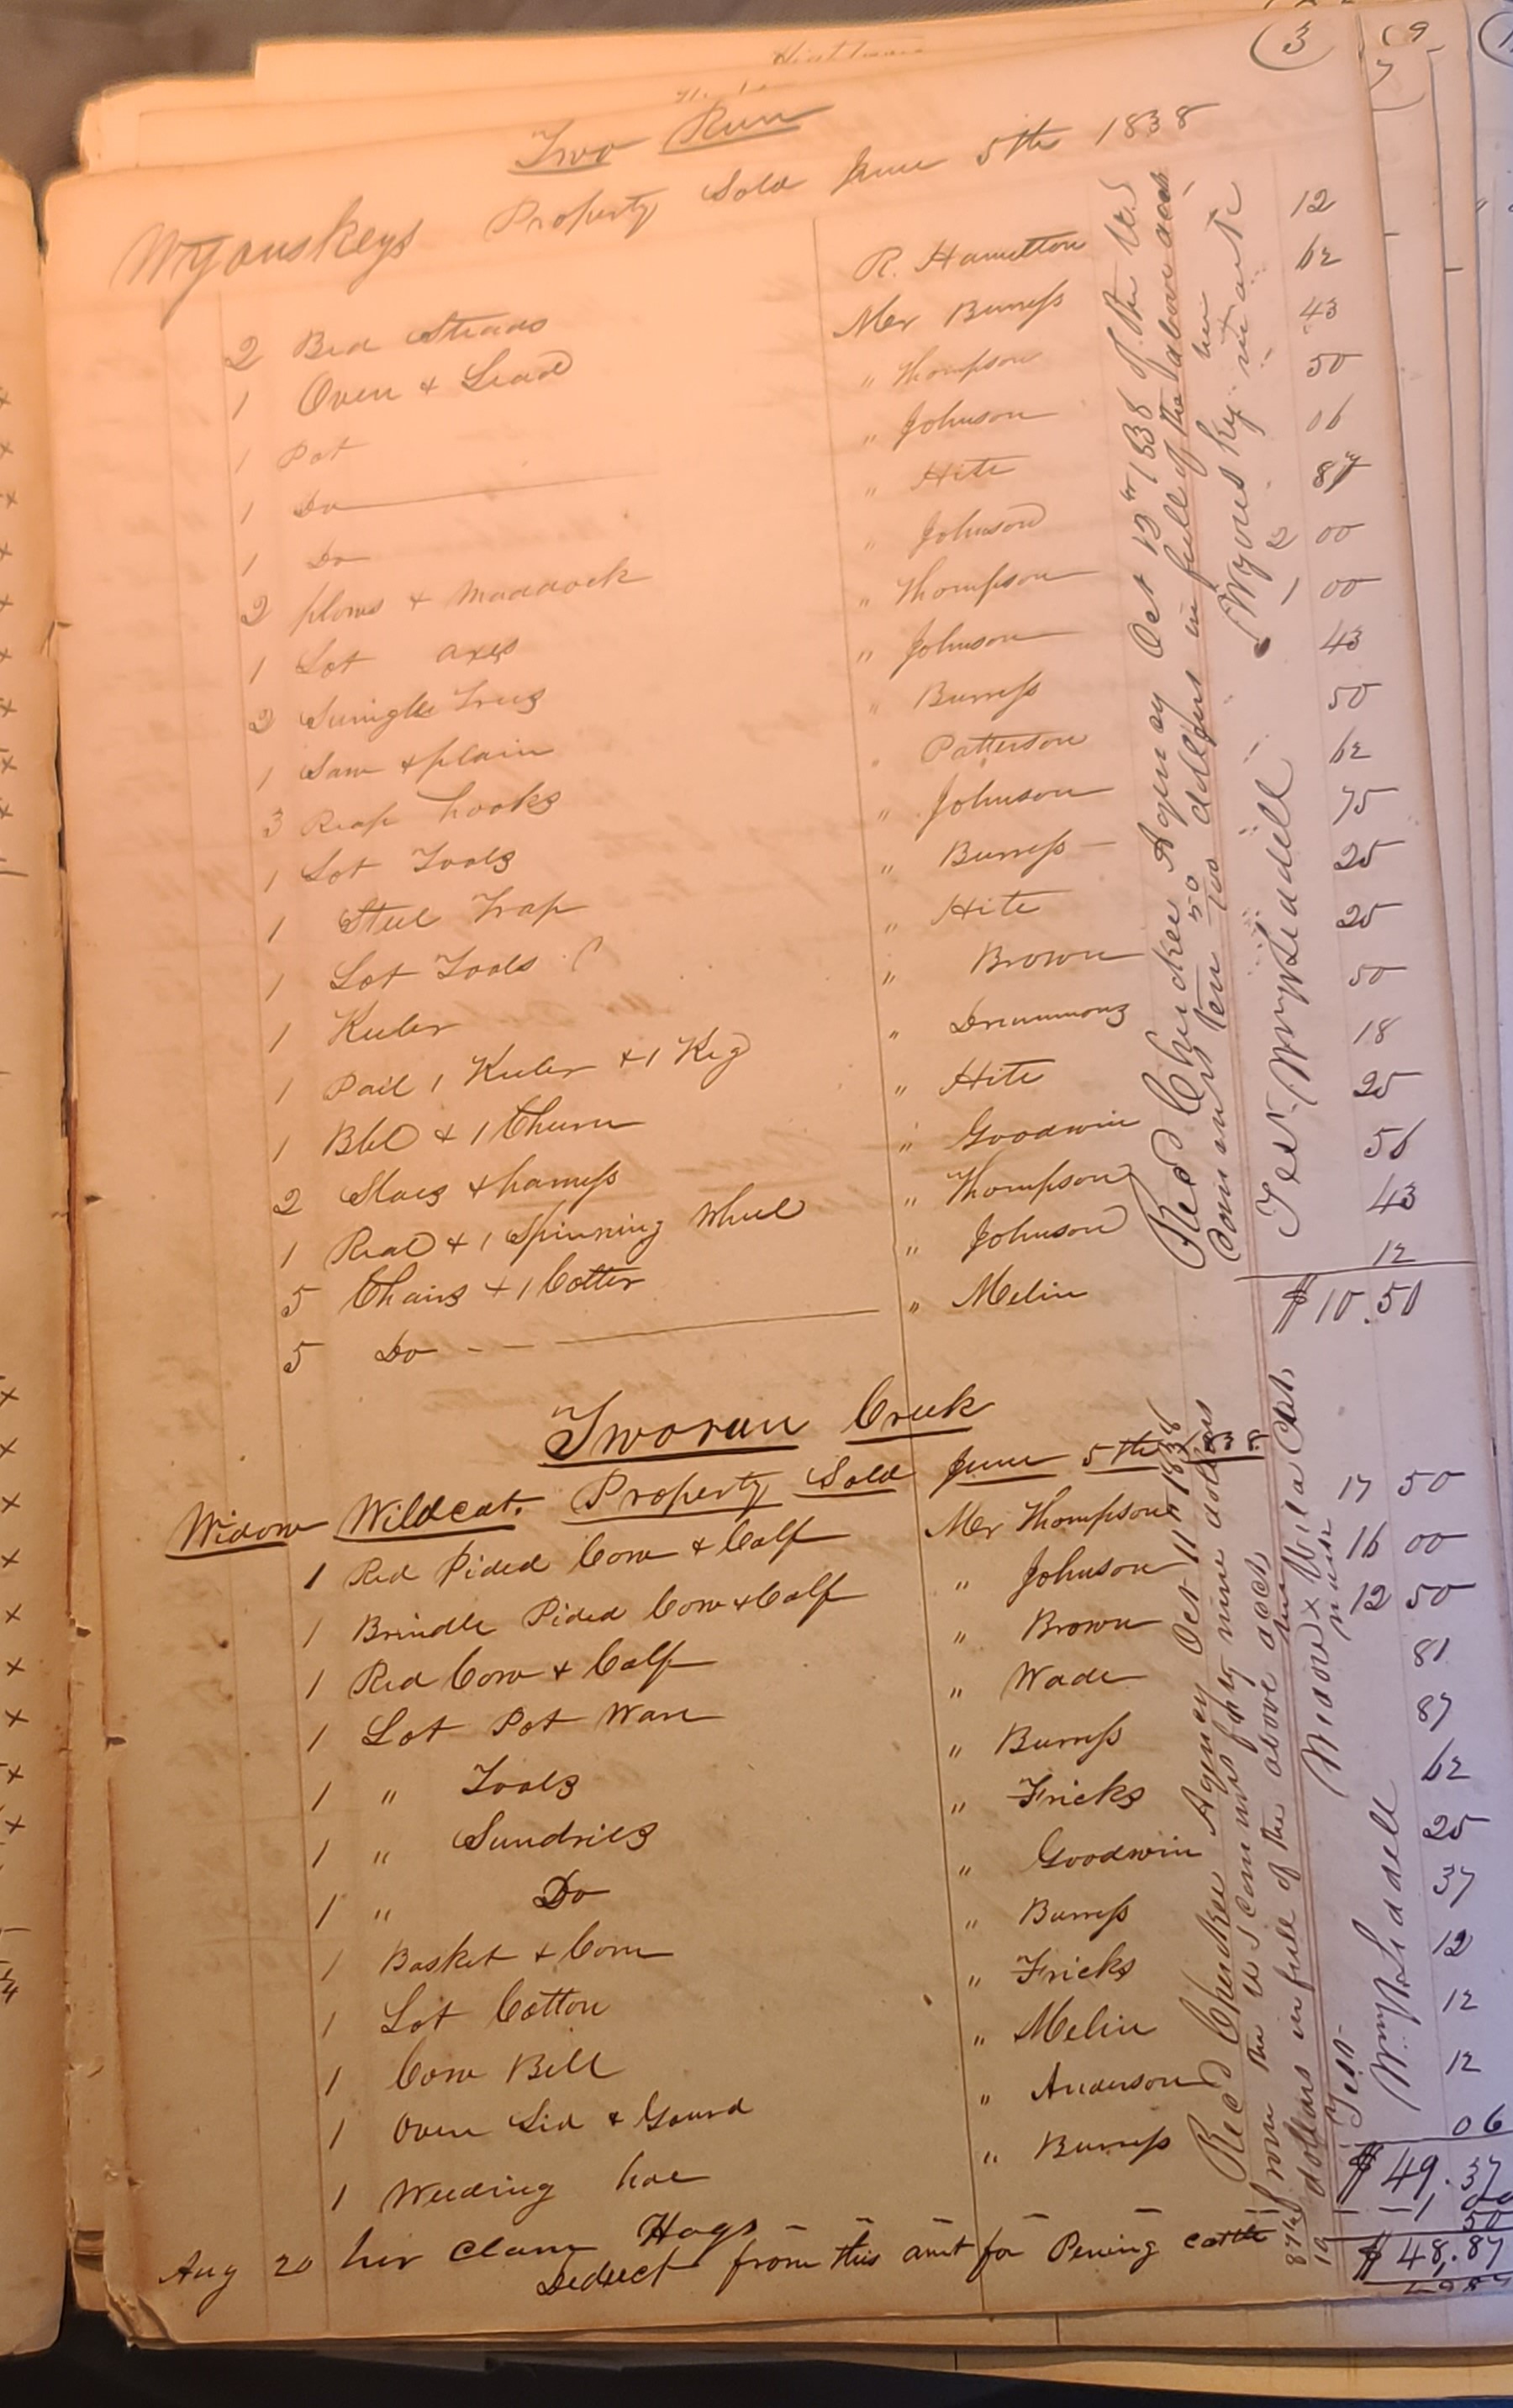 3
Two Run
Wyouskeys Property Sold June 5th 1838
2 Bed Steads R. Hamelton 12
1 Oven & Lead Mer Burress 62
1 Pot " Thompson 43
1 Do " Johnson 50
1 Do " Hite 06
2 plows & Maddock " Johnson 87
1 Lot axes " Thompson 2 00
2 Swingle Trees " Johnson 1 00
1 Saw & plain " Burress 43
3 Reap hooks Patterson 50
1 Lot Tools " Johnson 62
1 Steel Trap " Burress 75
1 Lot Tools " Hite 25
1 Keeler " Brown 25
1 Pail 1 Keeler & 1 Keg " Drummons 50
1 Bbl & 1 Churn " Hite 18
2 Slaes & harness " Goodwin 25
1 Real & 1 Spinning Wheel " Thompson 56
5 Chairs & 1 Cotter " Johnson 43
5 Do " Melin 12
$10.50
Recd Cherokee Agency Oct 12th 1838 of the U.S
Commrs ten 50/100 dollars in full of the above acct
her
Wyousky x mark
Test. Wm N Liddell
Tworun Creek
Widow Wildcat. Property Sold June 5th 1838
1 Red Pided Cow & Calf Mer Thompson 17 50
1 Brindle Pided Cow & Calf " Johnson 16 00
1 Red Cow & Calf " Brown 12 50
1 Lot Pot Ware " Wade 81
1 " Tools " Burress 87
1 " Sundries " Fricks 62
1 " Do " Goodwin 25
1 Basket & Corn " Burress 37
1 Lot Cotton " Fricks 12
1 Cow Bell " Melin 12
1 Oven Lid & Gourd " Anderson 12
1 Weeding hoe " Burress 06
$49.37
Aug 20 her Clam Hogs 1 00
Deduct from this amt for Pening cattle 50
$48.87
Recd Cherokee Agency Oct 11th 1838
from the U S Commrs forty nine dollars
87/100 dollars in full of the above acct
her
Widow x Wild Cat
mark
Test
Wm N Liddell